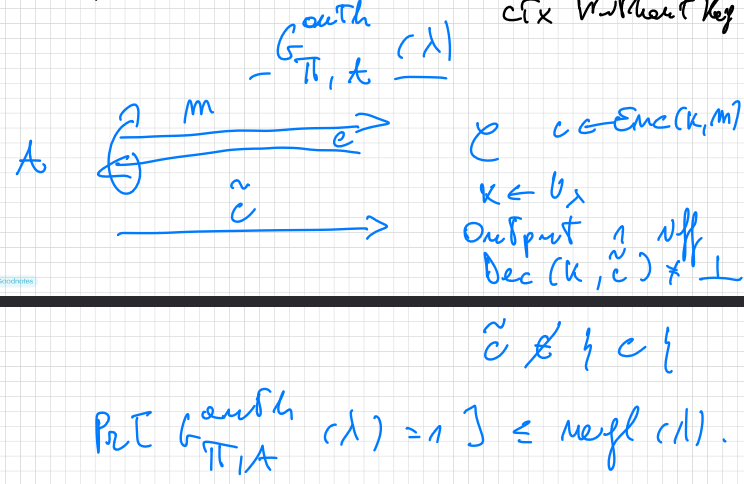 ctx without key
- G^{auth}_{Π, A} (λ)
m
c
A
C
c ← Enc(K, m)
K ← U_λ
c̃
Output 1 iff
Dec (K, c̃) ≠ ⊥
Goodnotes
c̃ ∉ { c }
Pr[ G^{auth}_{Π, A} (λ) = 1 ] ≤ negl (λ).